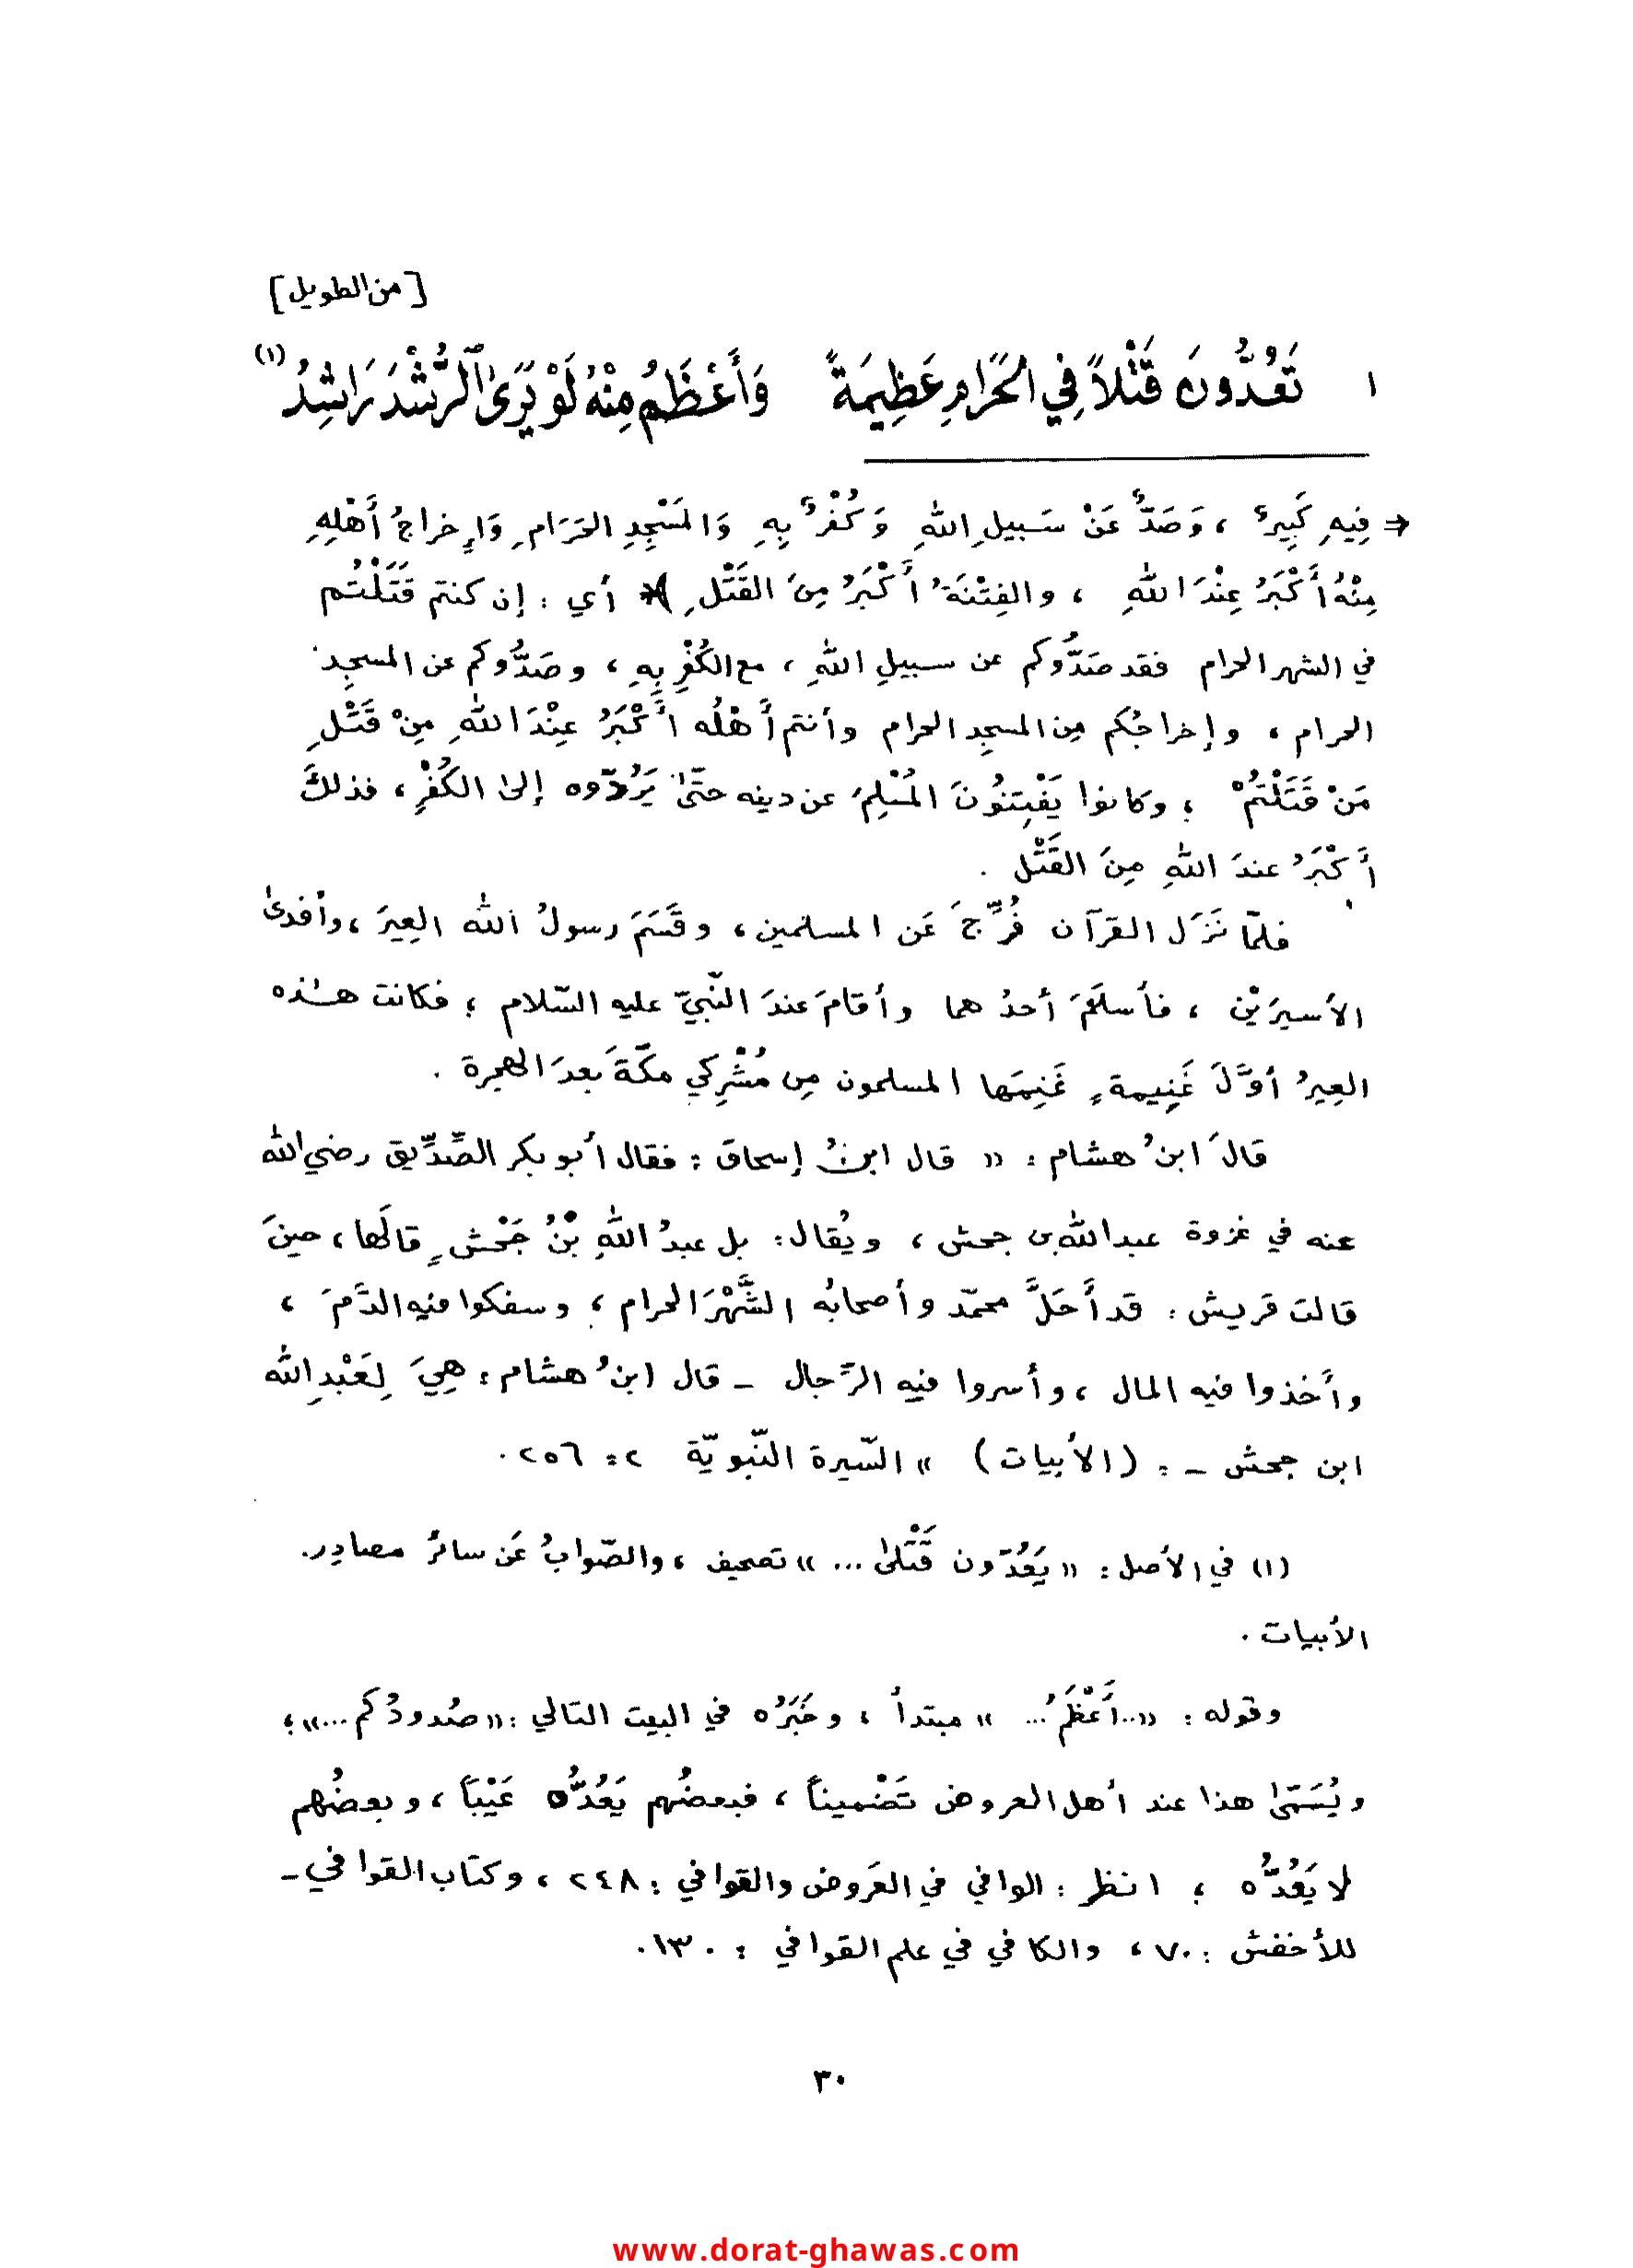 [من الطويل]
١ تَعُدُّونَ قَتْلاً فِي الحَرَامِ عَظِيمَةً وَأَعْظَمُ مِنْهُ لَوْ يَرَىٰ الرُّشْدَ رَاشِدُ (١)
⇒ فِيهِ كَبِيرٌ ، وَصَدٌّ عَنْ سَبِيلِ اللهِ وَكُفْرٌ بِهِ وَالمَسْجِدِ الحَرَامِ وَإِخراجُ أَهْلِهِ
مِنْهُ أَكْبَرُ عِنْدَ اللهِ ، والفِتْنَةُ أَكْبَرُ مِنَ القَتْلِ ﴾ أي : إن كنتم قَتَلْتُم
في الشهر الحرام فقد صَدُّوكم عن سبيلِ اللهِ ، مع الكُفْرِ بِهِ ، وصَدُّوكم عن المسجِد
الحرام ، وإخراجُكم مِن المسجِد الحرام وأنتم أَهْلُه أَكْبَرُ عِنْدَ اللهِ مِنْ قَتْلِ
مَنْ قَتَلْتُمْ ؛ وكانوا يَفْتِنُونَ المُسْلِمَ عن دينه حتّىٰ يَرُدّوه إلىٰ الكُفْرِ ، فذلكَ
أَكْبَرُ عندَ اللهِ مِنَ القَتْل .
فلمّا نَزَل القرآن فُرِّجَ عَن المسلمين ، وقَسَمَ رسولُ اللهِ العِيرَ ، وأفدىٰ
الأسيرَيْن ، فأسلَمَ أحدُهما وأقامَ عندَ النّبيّ عليه السّلام ؛ فكانت هـٰذه
العِيرُ أوَّلَ غَنِيمةٍ غَنِمَها المسلمون مِن مُشْرِكي مكّةَ بعدَ الهجرة .
قالَ ابنُ هشام : « قال ابنُ إسحاق : فقال أبو بكر الصِّدِّيق رضي الله
عنه في غزوة عبد الله بن جحش ، ويُقال : بل عبدُ اللهِ بْنُ جَحْشٍ قالَها ، حينَ
قالت قريش : قد أَحَلَّ محمّد وأصحابُه الشَّهْرَ الحرام ، وسفكوا فيه الدَّمَ ،
وأَخذوا فيه المال ، وأسروا فيه الرّجال ـ قال ابنُ هشام : هِيَ لِعَبْدِ الله
ابن جحش ـ : (الأبيات) » السّيرة النّبويّة ٢ : ٢٥٦ .
(١) في الأصل : « يَعُدّون قَتْلىٰ ... » تصحيف ، والصّوابُ عَن سائر مصادِر
الأبيات .
وقوله : « ..أَعْظَمُ... » مبتدأ ، وخَبَرُه في البيت التالي : « صُدودُكم ... » ؛
ويُسَمّىٰ هذا عند أهل العروض تَضْميناً ، فبعضُهم يَعُدُّه عَيْباً ، وبعضُهم
لا يَعُدُّه ؛ انظر : الوافي في العَروض والقوافي : ٢٤٨ ، وكتاب القوافي ـ
للأخفش : ٧٠ ، والكافي في علم القوافي : ١٣٠ .
٣٠
www.dorat-ghawas.com